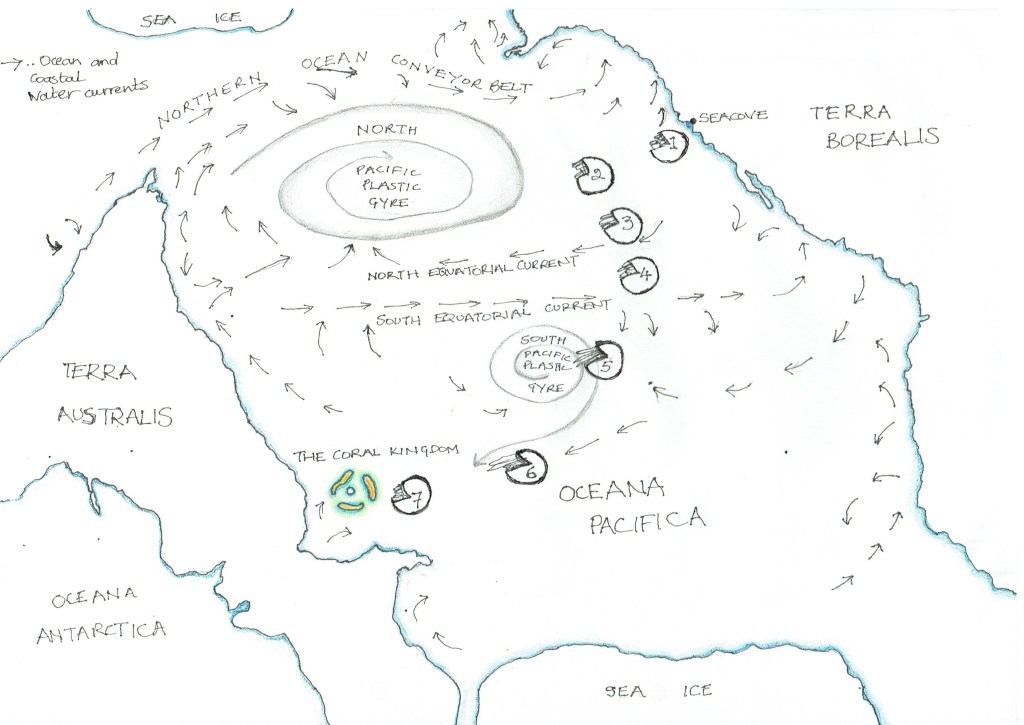 SEA ICE
→.. Ocean and
Coastal
Water currents
NORTHERN OCEAN CONVEYOR BELT
NORTH
PACIFIC
PLASTIC
GYRE
SEACOVE
TERRA
BOREALIS
1
2
3
4
NORTH EQUATORIAL CURRENT
SOUTH EQUATORIAL CURRENT
SOUTH
PACIFIC
PLASTIC
GYRE
5
TERRA
AUSTRALIS
THE CORAL KINGDOM
6
7
OCEANA
PACIFICA
OCEANA
ANTARCTICA
SEA ICE